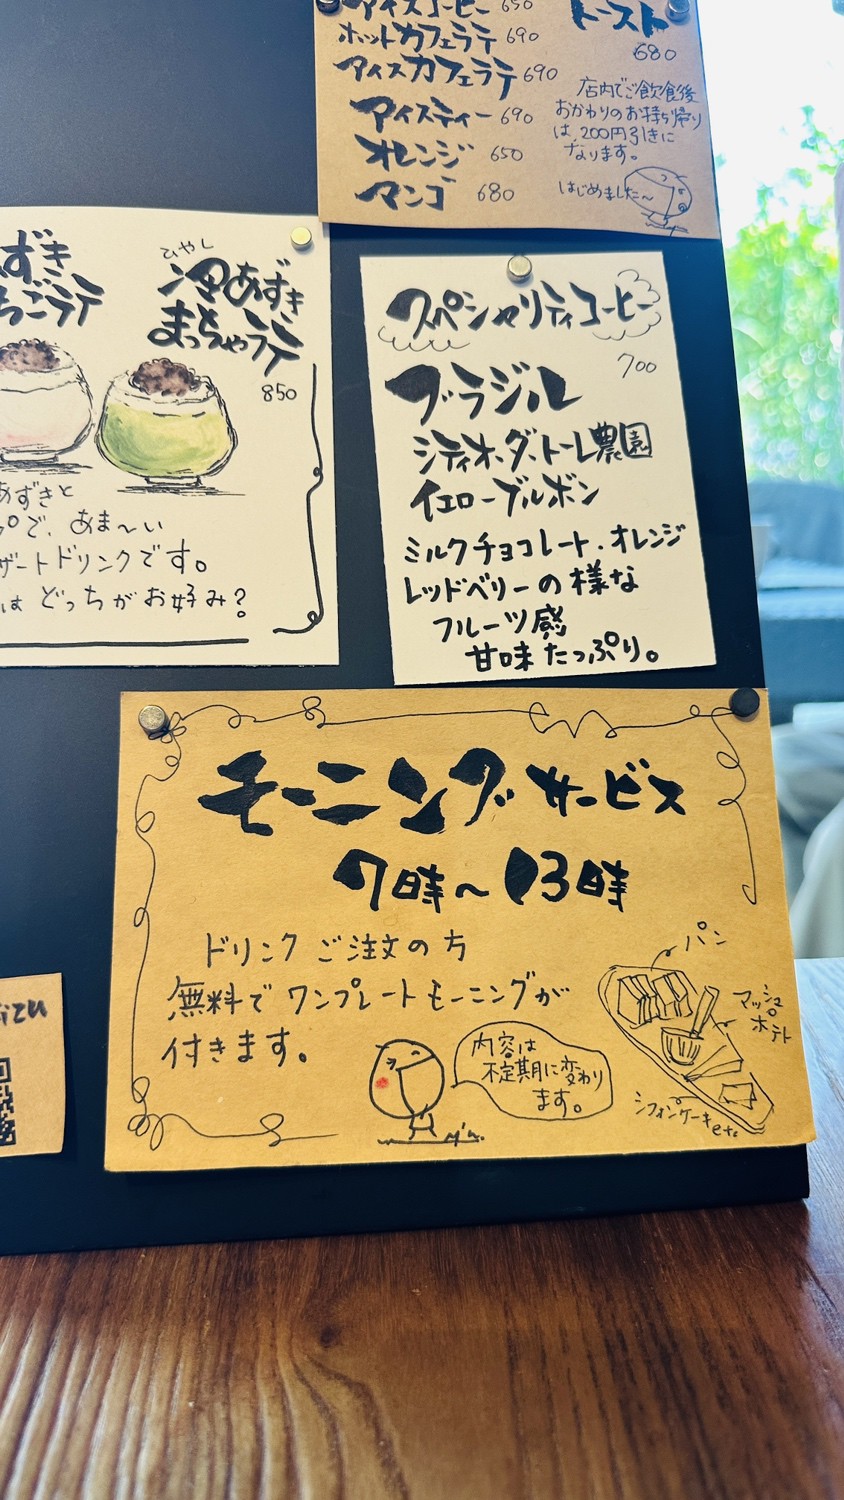 アイスコーヒー 650
ホットカフェラテ 690
アイスカフェラテ 690
アイスティー 690
オレンジ 650
マンゴ 680
トースト
680
店内でご飲食後
おかわりのお持ち帰り
は、200円引きに
なります。
はじめました～
ずき
ごラテ
ひやし
冷あずき
まっちゃラテ
850
あずきと
プで、あま～い
ザートドリンクです。
はどっちがお好み?
スペシャリティコーヒー
700
ブラジル
シティオ・ダ・トーレ農園
イエローブルボン
ミルクチョコレート・オレンジ
レッドベリーの様な
フルーツ感
甘味たっぷり。
モーニングサービス
7時～13時
ドリンクご注文の方
無料でワンプレートモーニングが
付きます。
内容は
不定期に変わり
ます。
パン
マッシュ
ポテト
シフォンケーキetc